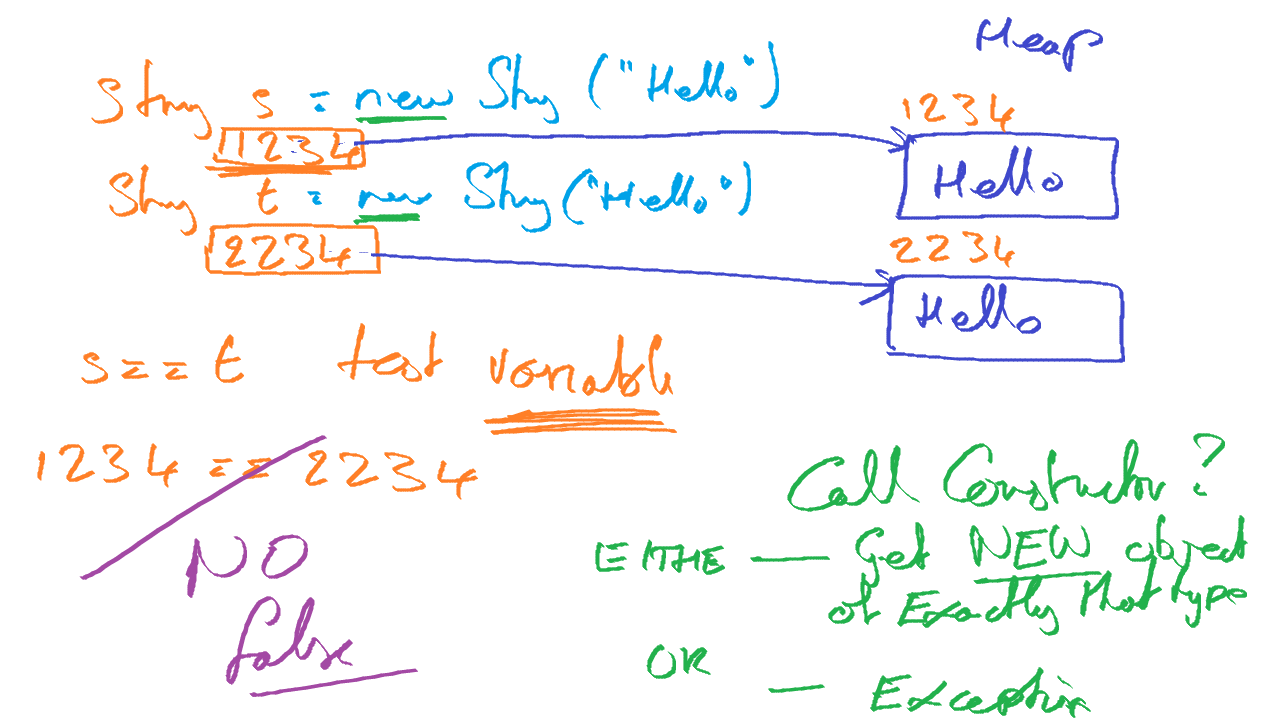 Heap
String s = new String ("Hello")
1234
1234
Hello
String t = new String ("Hello")
2234
2234
Hello
s == t test variable
1234 == 2234
NO
false
Call Constructor?
EITHE — Get NEW object
of Exactly that type
OR
— Exception